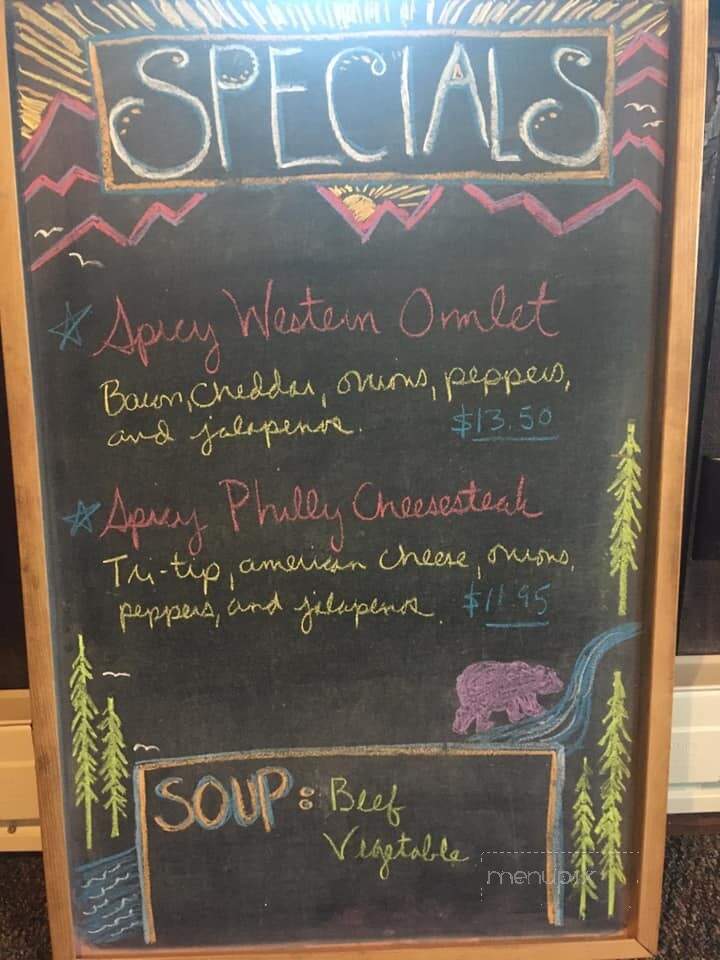 SPECIALS
Spicy Western Omlet
Bacon, Cheddar, onions, peppers,
and jalapenos.
$13.50
Spicy Philly Cheesesteak
Tri-tip, american cheese, onions,
peppers, and jalapenos.
$11.95
SOUP: Beef
Vegetable
menupix